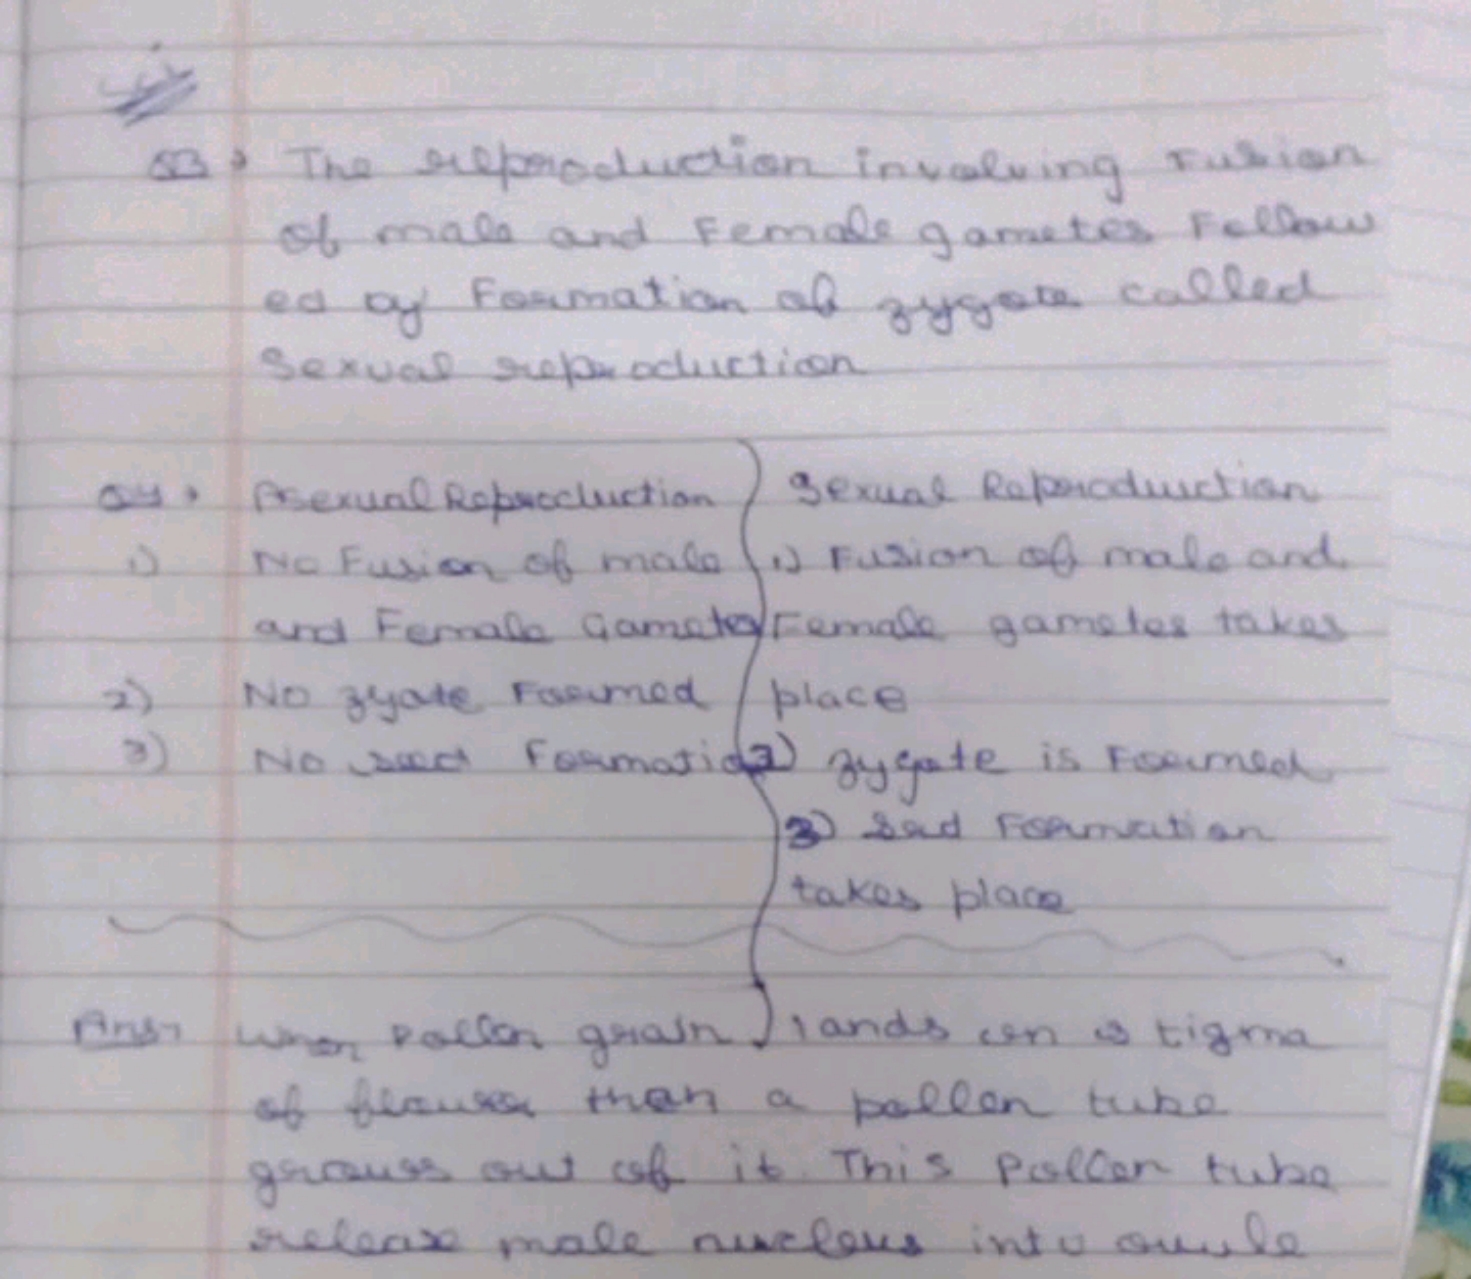 Q3. The reproduction involving Fusion
of male and Female gametes Follow
ed by Formation of zygote called
Sexual reproduction
Q4. Asexual Reproduction
1) No Fusion of male
and Female Gametes
2) No zyate Formed
3) No seed Formation
Sexual Reproduction
1) Fusion of male and
Female gametes takes
place
2) zygote is Formed
3) Seed Formation
takes place
Ans. When Pollen grain lands on stigma
of flower then a pollen tube
grows out of it. This Pollen tube
release male nucleus into ovule